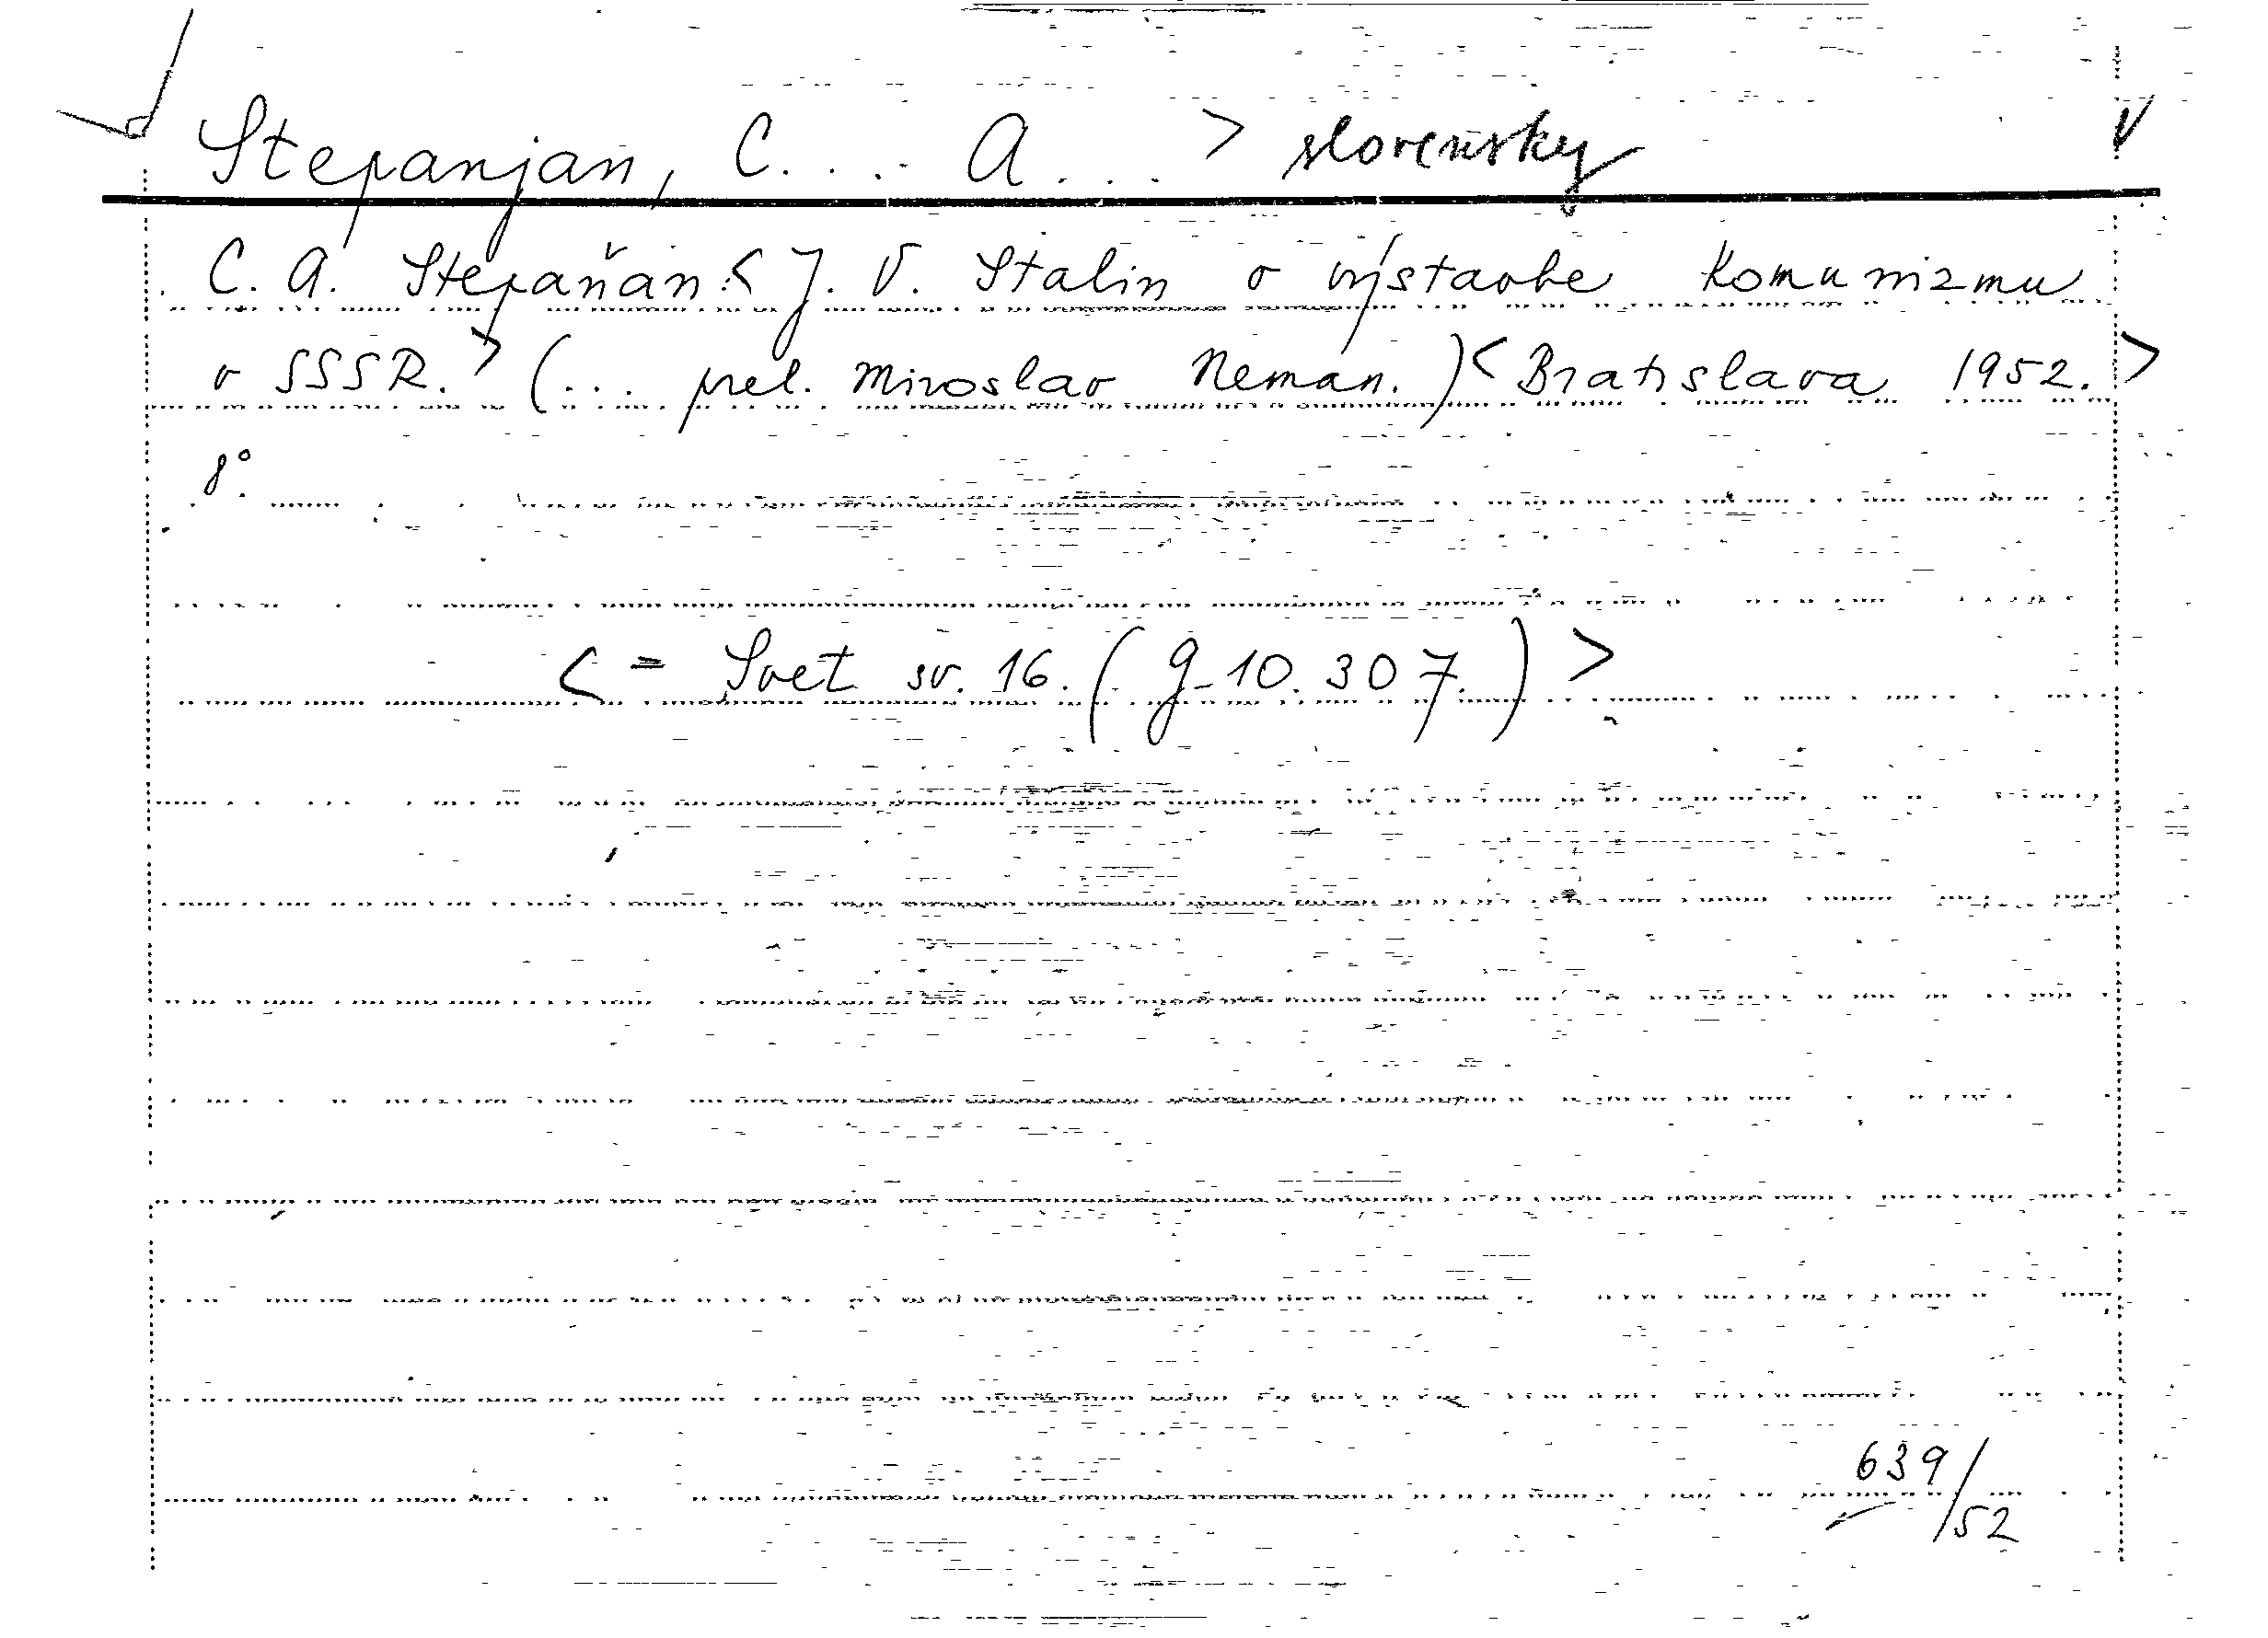 Stepanjan, C... A...> slovensky V
C. A. Stepaňan:< J. V. Stalin o výstavbe komunizmu
v SSSR.> (... prel. Miroslav Neman.)< Bratislava 1952.>
8°.
< = Svet sv. 16. (g-10.307.) >
639/52